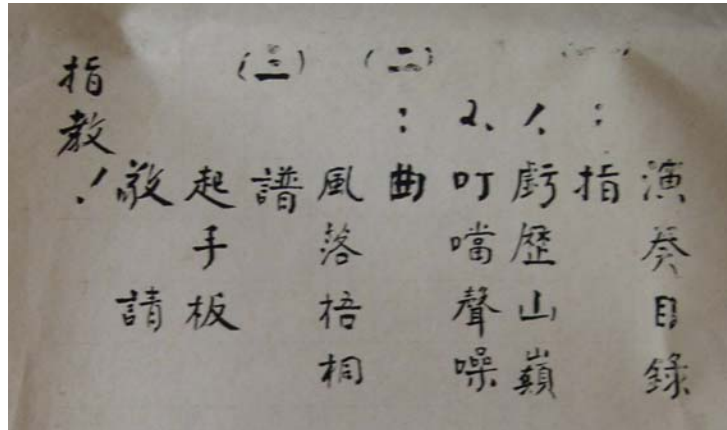 演奏目錄
：指
1、虧歷山巔
2、叮噹聲噪
（二）：曲
風落梧桐
（三）譜
起手板
敬請
指教！